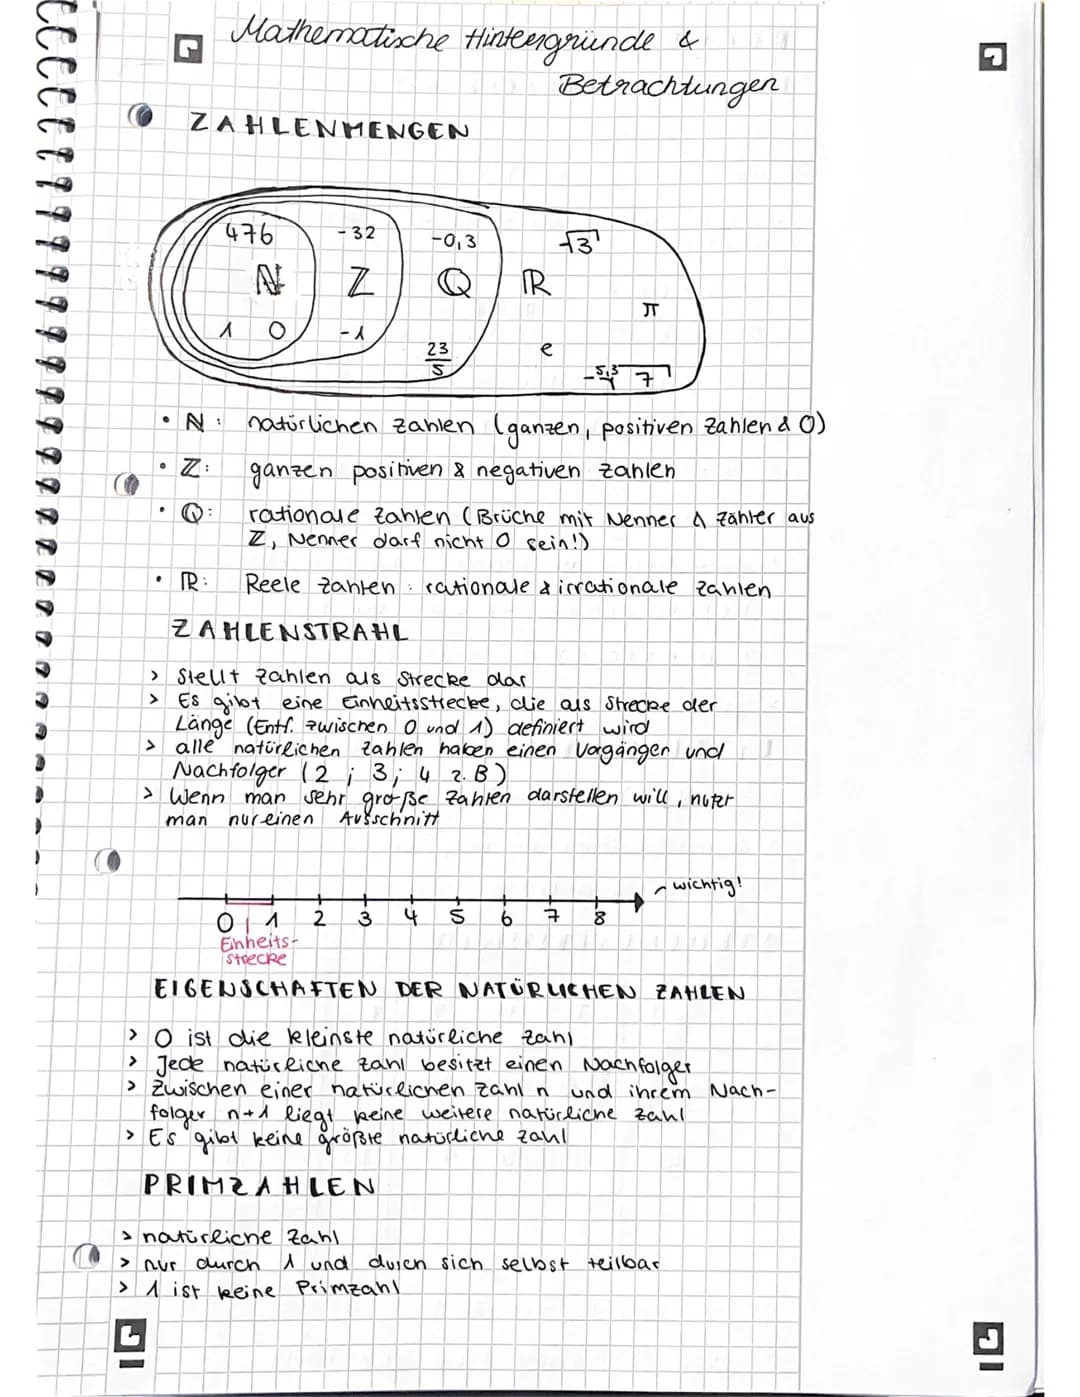 Mathematische Hintergründe &
Betrachtungen
ZAHLENMENGEN
476 -32 -0,3 √3
N Z Q R
π
1 0 -1 23/5 e
7
• N: natürlichen Zahlen (ganzen, positiven Zahlen & 0)
• Z: ganzen positiven & negativen Zahlen
• Q: rationale Zahlen (Brüche mit Nenner & Zähler aus
Z, Nenner darf nicht 0 sein!)
• R: Reele Zahlen: rationale & irrationale Zahlen
ZAHLENSTRAHL
> Stellt Zahlen als Strecke dar
> Es gibt eine Einheitsstrecke, die als Strecke der
Länge (Entf. zwischen 0 und 1) definiert wird
> alle natürlichen Zahlen haben einen Vorgänger und
Nachfolger (2; 3; 4 z.B)
> Wenn man sehr große Zahlen darstellen will, nutzt
man nur einen Ausschnitt
wichtig!
0 1 2 3 4 5 6 7 8
Einheits-
strecke
EIGENSCHAFTEN DER NATÜRLICHEN ZAHLEN
> 0 ist die kleinste natürliche Zahl
> Jede natürliche Zahl besitzt einen Nachfolger
> Zwischen einer natürlichen Zahl n und ihrem Nach-
folger n+1 liegt keine weitere natürliche Zahl
> Es gibt keine größte natürliche Zahl
PRIMZAHLEN
> natürliche Zahl
> nur durch 1 und durch sich selbst teilbar
> 1 ist keine Primzahl